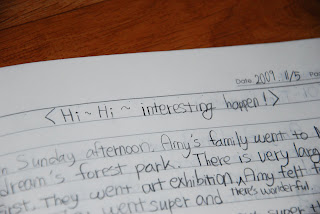 Date 2009. 11/5
<Hi~Hi~ interesting happen!>
Sunday afternoon. Amy's family went to
dream's forest park. There is very larg
first. They went art exhibition, Amy felt
went super and there's wonderful.